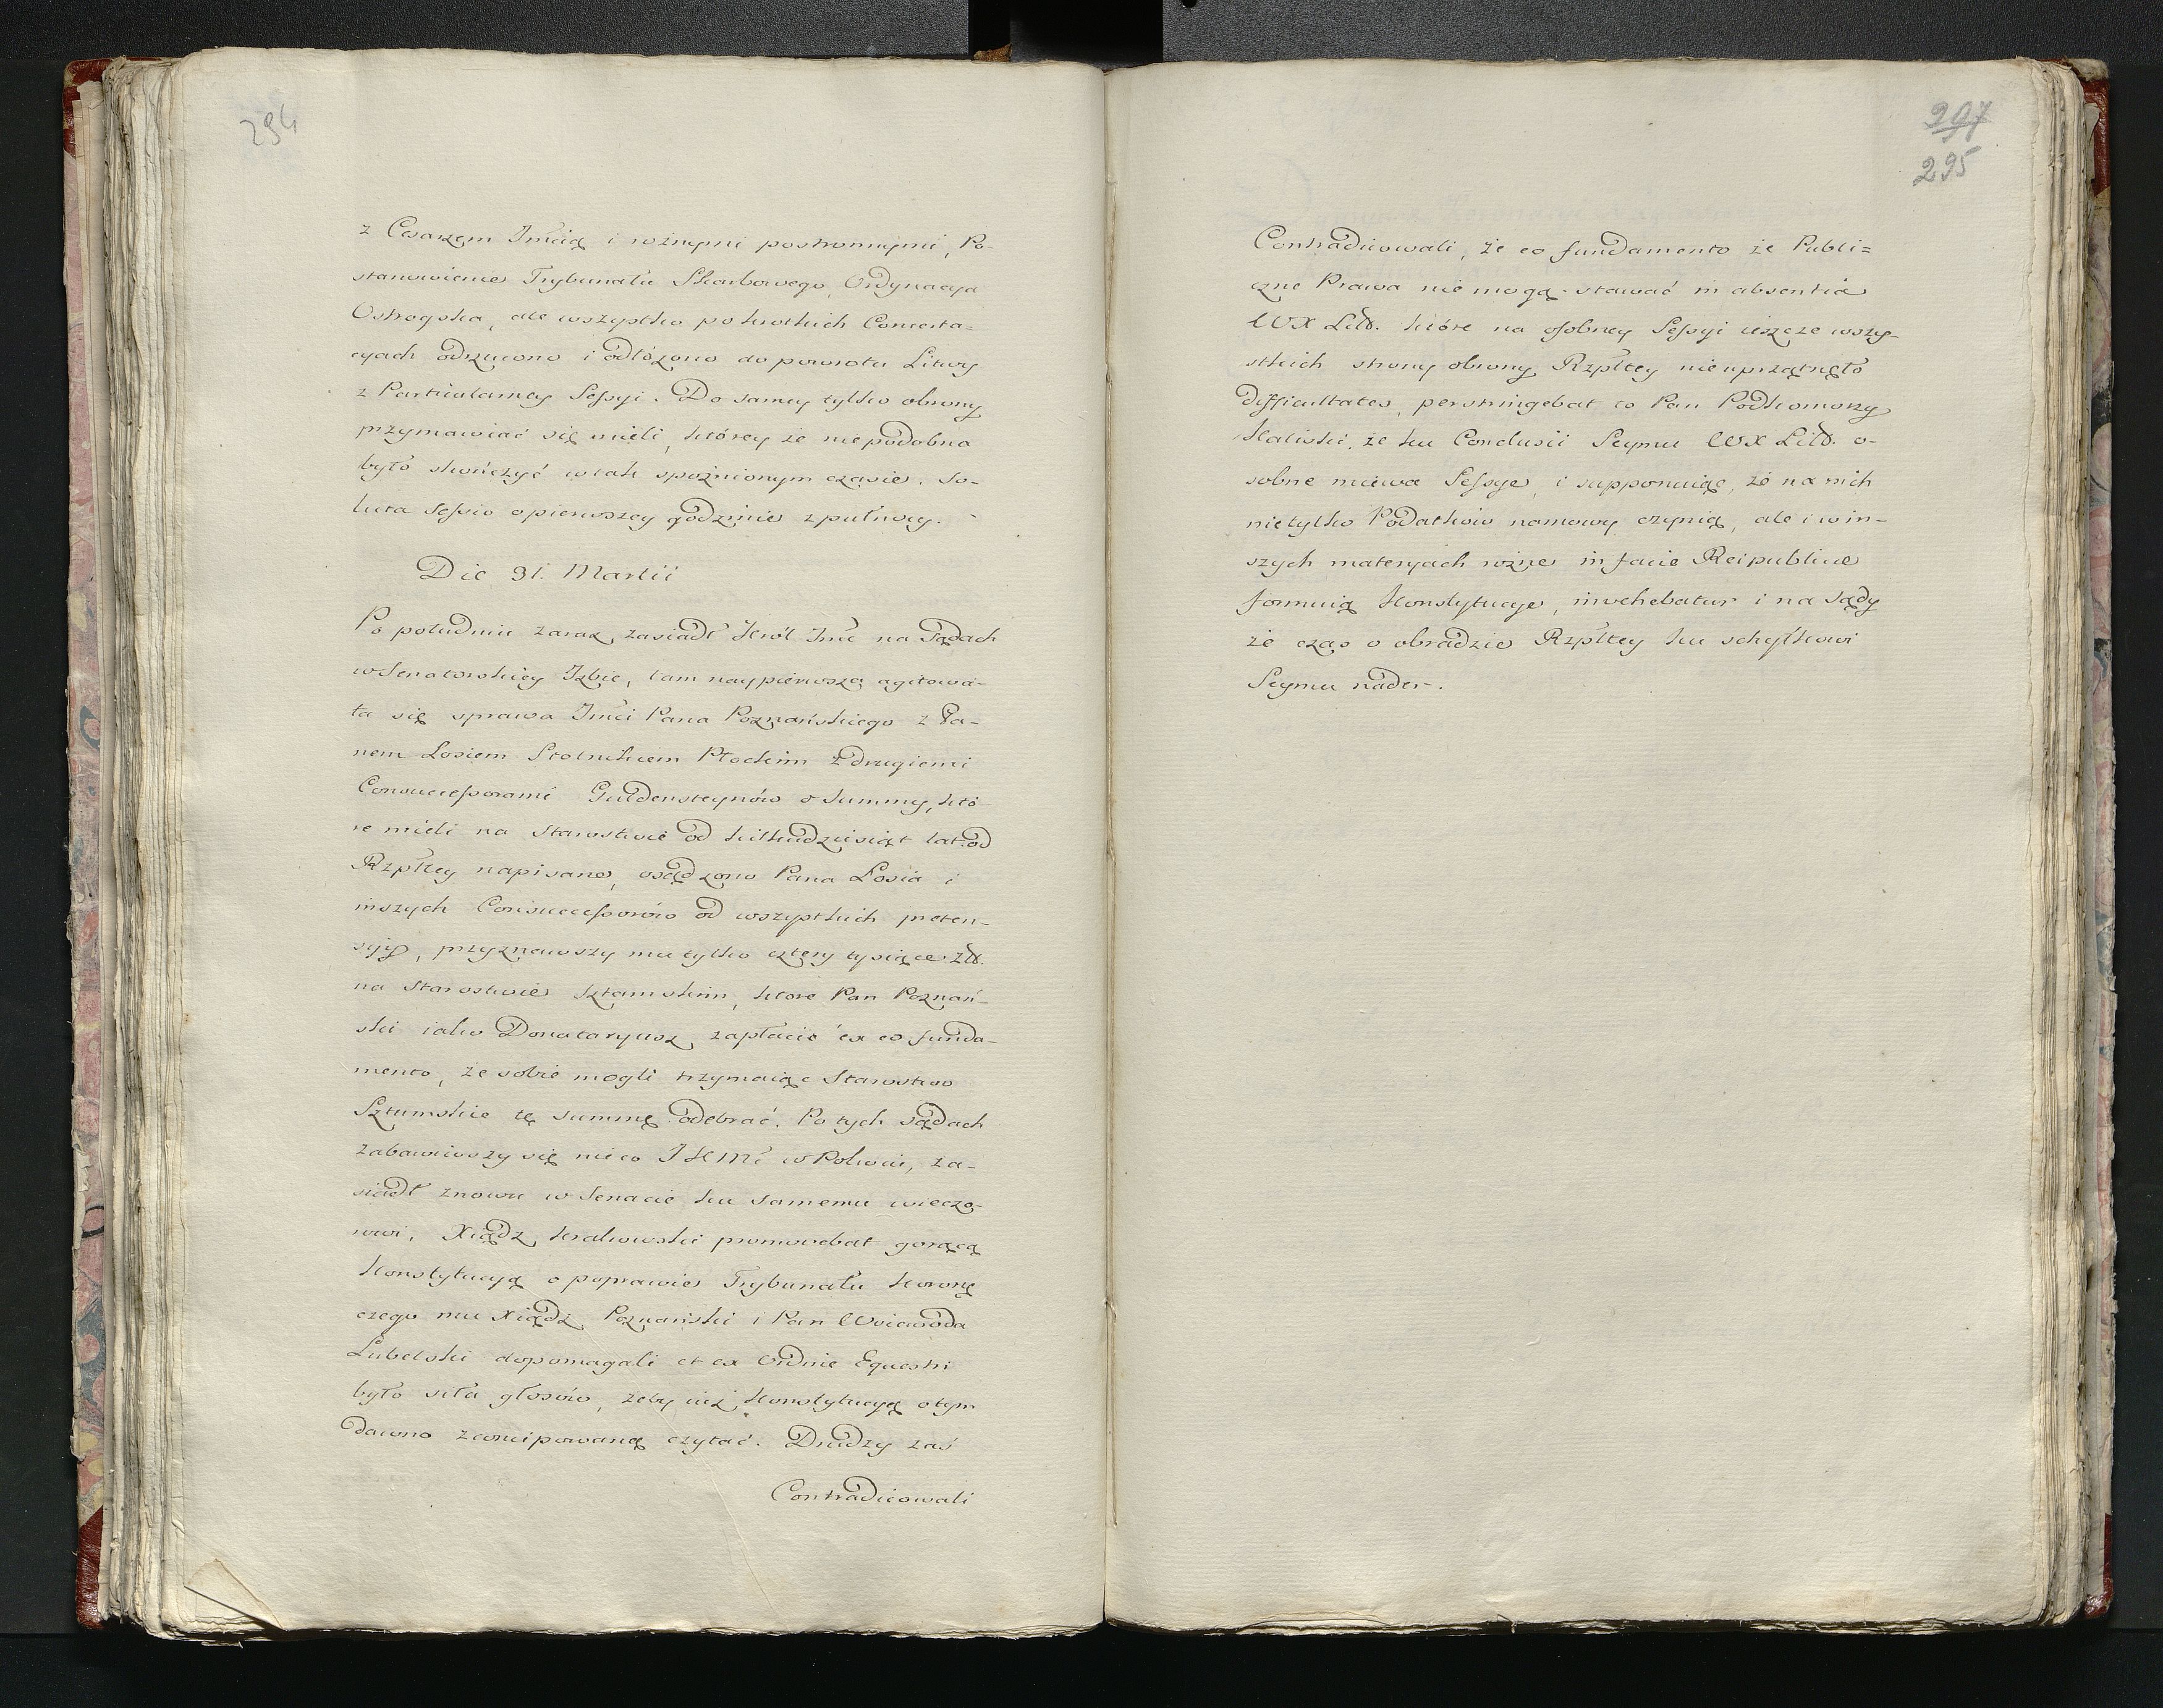 294
z Cesarzem Jmcią i rożnymi postronnymi, Po-
stanowienie Trybunału Skarbowego, Ordynacya
Ostrogska, ale wszystko po krotkich Contesta-
cyach odrzucono i odłożono do powrotu Litwy
z Particularney Sessyi. Do samey tylko obrony
przymawiać się mieli, ktorey że nie podobna
było skończyć w tak spoźnionym czasie. So-
luta Sessio o pierwszey godzinie z pułnocy.
Die 31. Martii
Po południu zaraz zasiadł Krol Jmć na Sądach
w Senatorskiey Izbie, tam naypierwsza agitowa-
ła się sprawa Jmci Pana Poznańskiego z Pa-
nem Łosiem Stolnikiem Płockim z drugiemi
Consuccessorami Guldensteynów o summy, któ-
re mieli na Starostwie od kilkudziesiąt lat od
Rzpltey napisane, osądzono Pana Łosia i
inszych Consuccessorów od wszystkich preten-
syy, przyznawszy mu tylko cztery tysiące zł.
na Starostwie Sztumskim, ktore Pan Poznań-
ski iako Donataryusz zapłacić ex eo funda-
mento, że sobie mogli trzymaiąc Starostwo
Sztumskie tę summę odebrać. Po tych sądach
zabawiwszy się nieco JKMć w Pokoiu, za-
siadł znowu w Senacie ku samemu wieczo-
rowi, Xiądz Krakowski promovebat gorącą
Konstytucyą o poprawie Trybunału Koronę
czego mu Xiądz Poznański i Pan Woiewoda
Lubelski dopomagali et ex Ordine Equestri
było siła głosów, żeby iuż Konstytucyą o tym
dawno zconcipowaną czytać. Drudzy zaś
Contradicowali
297
295
Contradicowali, że eo fundamento że Publi=
czne Prawa nie mogą stawać in absentia
WX Litt. które na osobney Sessyi ieszcze wszy-
stkich strony obrony Rzpltey nieuprzątnęło
difficultates, perstringebat to Pan Podkomorzy
Kaliski, że ku Conclusii Seymu WX Litt. o-
sobne miewa Sessye, i supponuiąc, że na nich
nietylko Podatków namowy czynią, ale i w in-
szych materyach rożne in facie Reipublicae
formuią Konstytucye, invehebatur i na sądy
że czas o obradzie Rzpltey ku schyłkowi
Seymu nader.